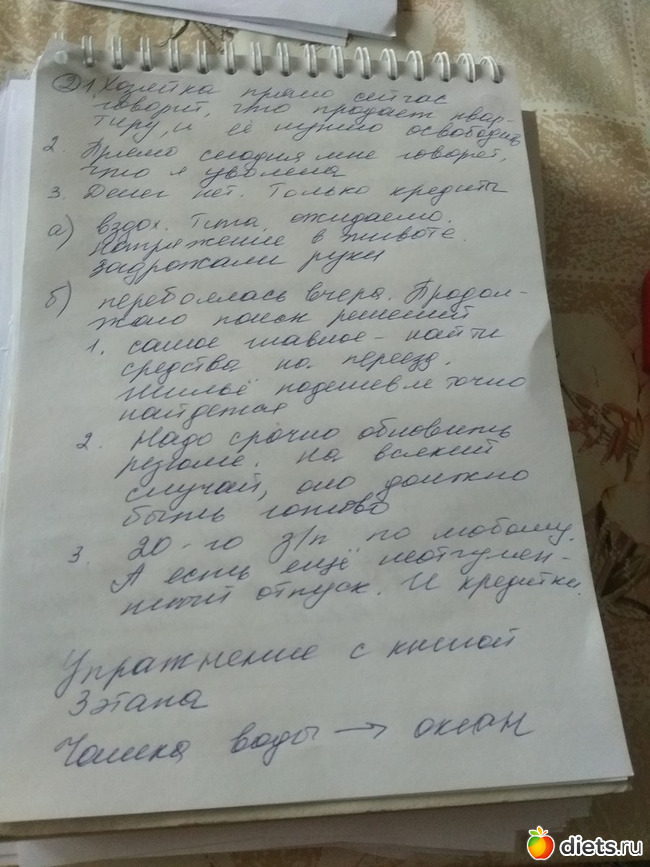 ② 1. Хозяйка прямо сейчас
говорит, что продает квар-
тиру, и её нужно освободить
2. Прямо сегодня мне говорят,
что я уволена
3. Денег нет. Только кредиты
а) вздох. Типа, ожидаемо.
Напряжение в животе.
Задрожали руки
б) переболась вчера. Продол-
жаю поиск решений
1. самое главное - найти
средства на переезд.
Жильё подешевле точно
найдется
2. Надо срочно обновить
резюме. На всякий
случай, оно должно
быть готово
3. 20-го з/п по любому.
А есть ещё неотгулен-
ный отпуск. И кредитки.
Упражнение с книгой
3 этапа
Чашка воды → океан
diets.ru